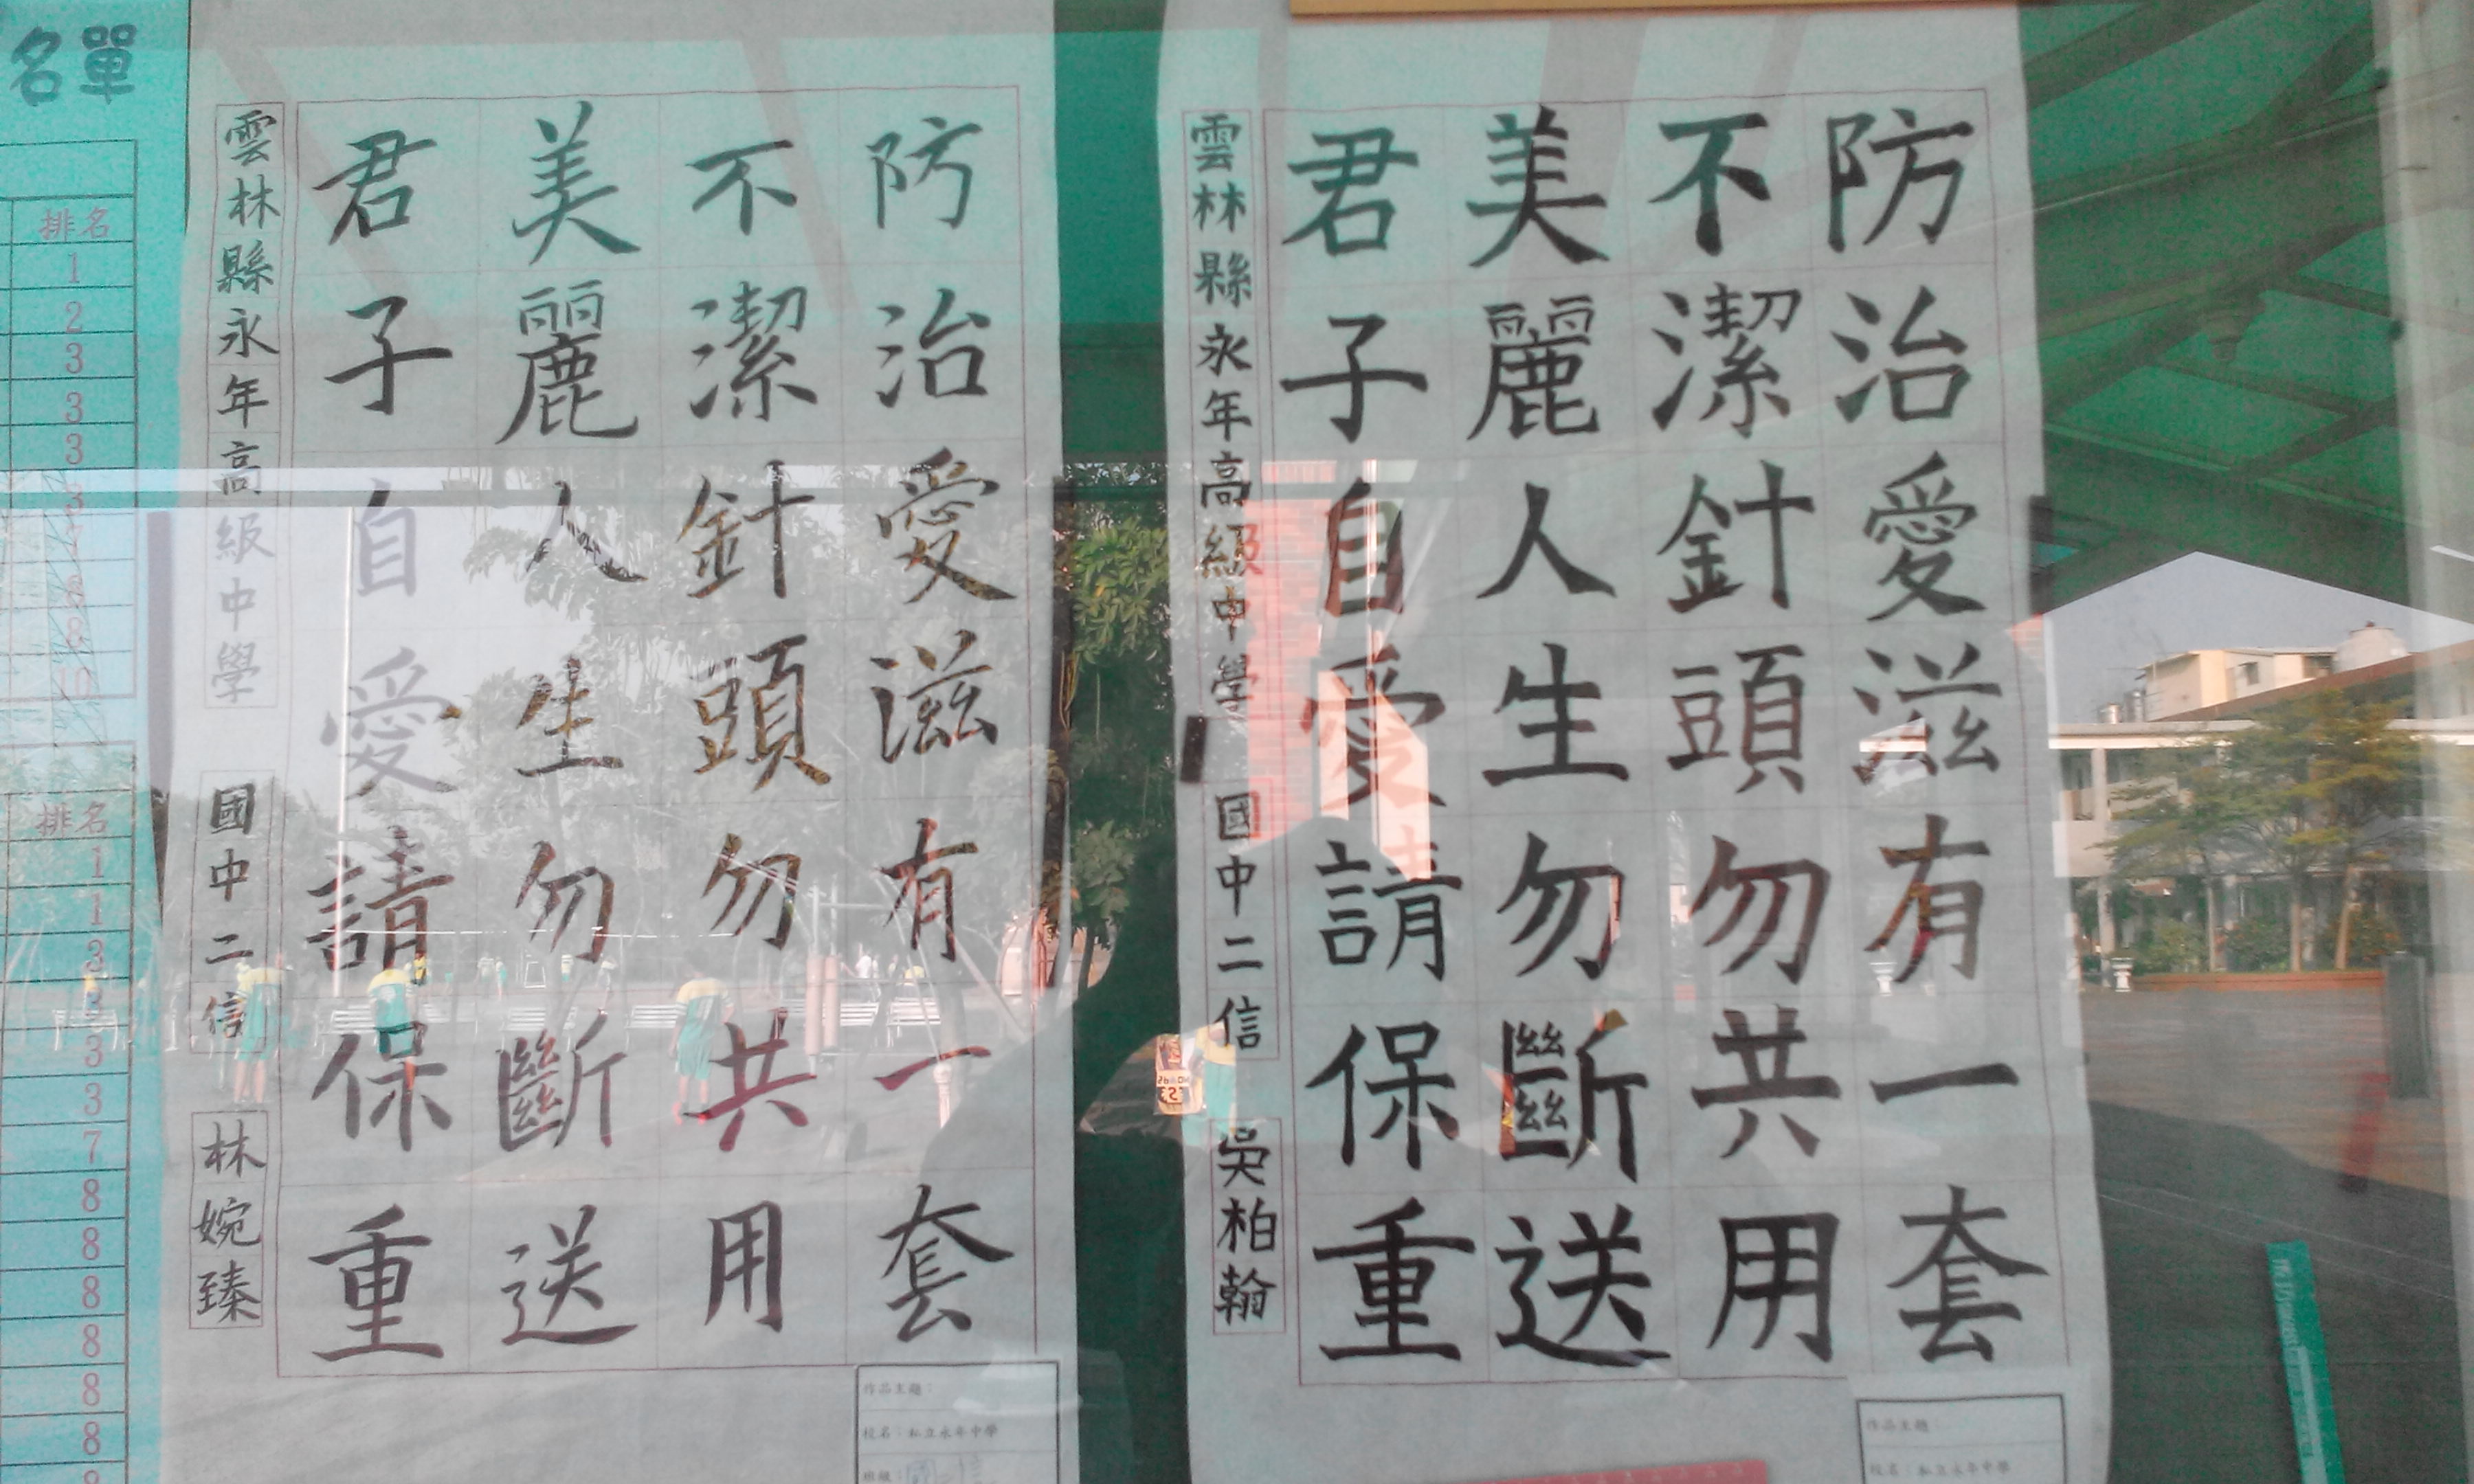 防治愛滋有一套
不潔針頭勿共用
美麗人生勿斷送
君子自愛請保重
雲林縣永年高級中學
國中二信
吳柏翰
作品主題：
校名：私立永年中學
防治愛滋有一套
不潔針頭勿共用
美麗人生勿斷送
君子自愛請保重
雲林縣永年高級中學
國中二信
林婉臻
作品主題：
校名：私立永年中學
班級：
名單
排名
1
2
3
3
3
3
7
8
8
10
排名
1
1
3
3
3
3
7
8
8
8
8
8
8